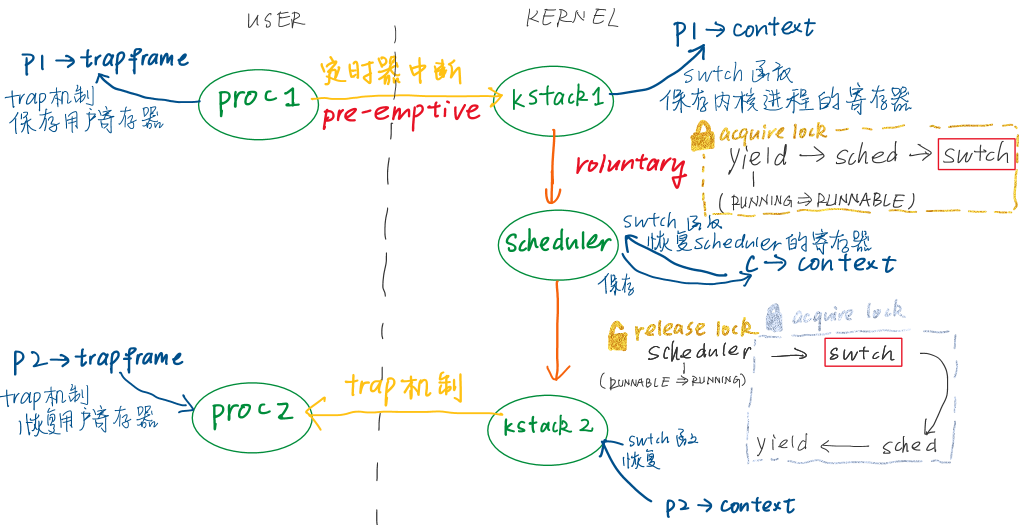 USER
KERNEL
p1→trapframe
trap机制
保存用户寄存器
proc1
定时器中断
pre-emptive
kstack1
p1→context
swtch函数
保存内核进程的寄存器
acquire lock
yield → sched → swtch
(RUNNING⇒RUNNABLE)
voluntary
scheduler
swtch函数
恢复scheduler的寄存器
c→context
保存
release lock
acquire lock
scheduler → swtch
(RUNNABLE⇒RUNNING)
yield ← sched
p2→trapframe
trap机制
恢复用户寄存器
proc2
trap机制
kstack2
swtch函数
恢复
p2→context